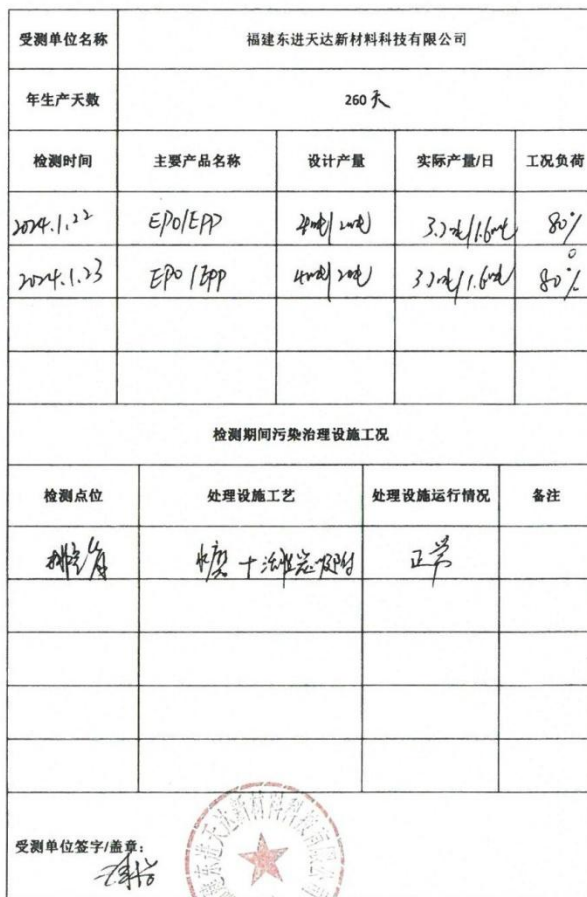 受测单位名称 福建东进天达新材料科技有限公司
年生产天数 260天
检测时间 主要产品名称 设计产量 实际产量/日 工况负荷
2024.1.22 EPO/EPP 3.2吨/1.6吨 80%
2024.1.23 EPO/EPP 4吨/2吨 3.2吨/1.6吨 80%
检测期间污染治理设施工况
检测点位 处理设施工艺 处理设施运行情况 备注
排气筒 水喷+活性炭吸附 正常
受测单位签字/盖章:
福建东进天达新材料科技有限公司